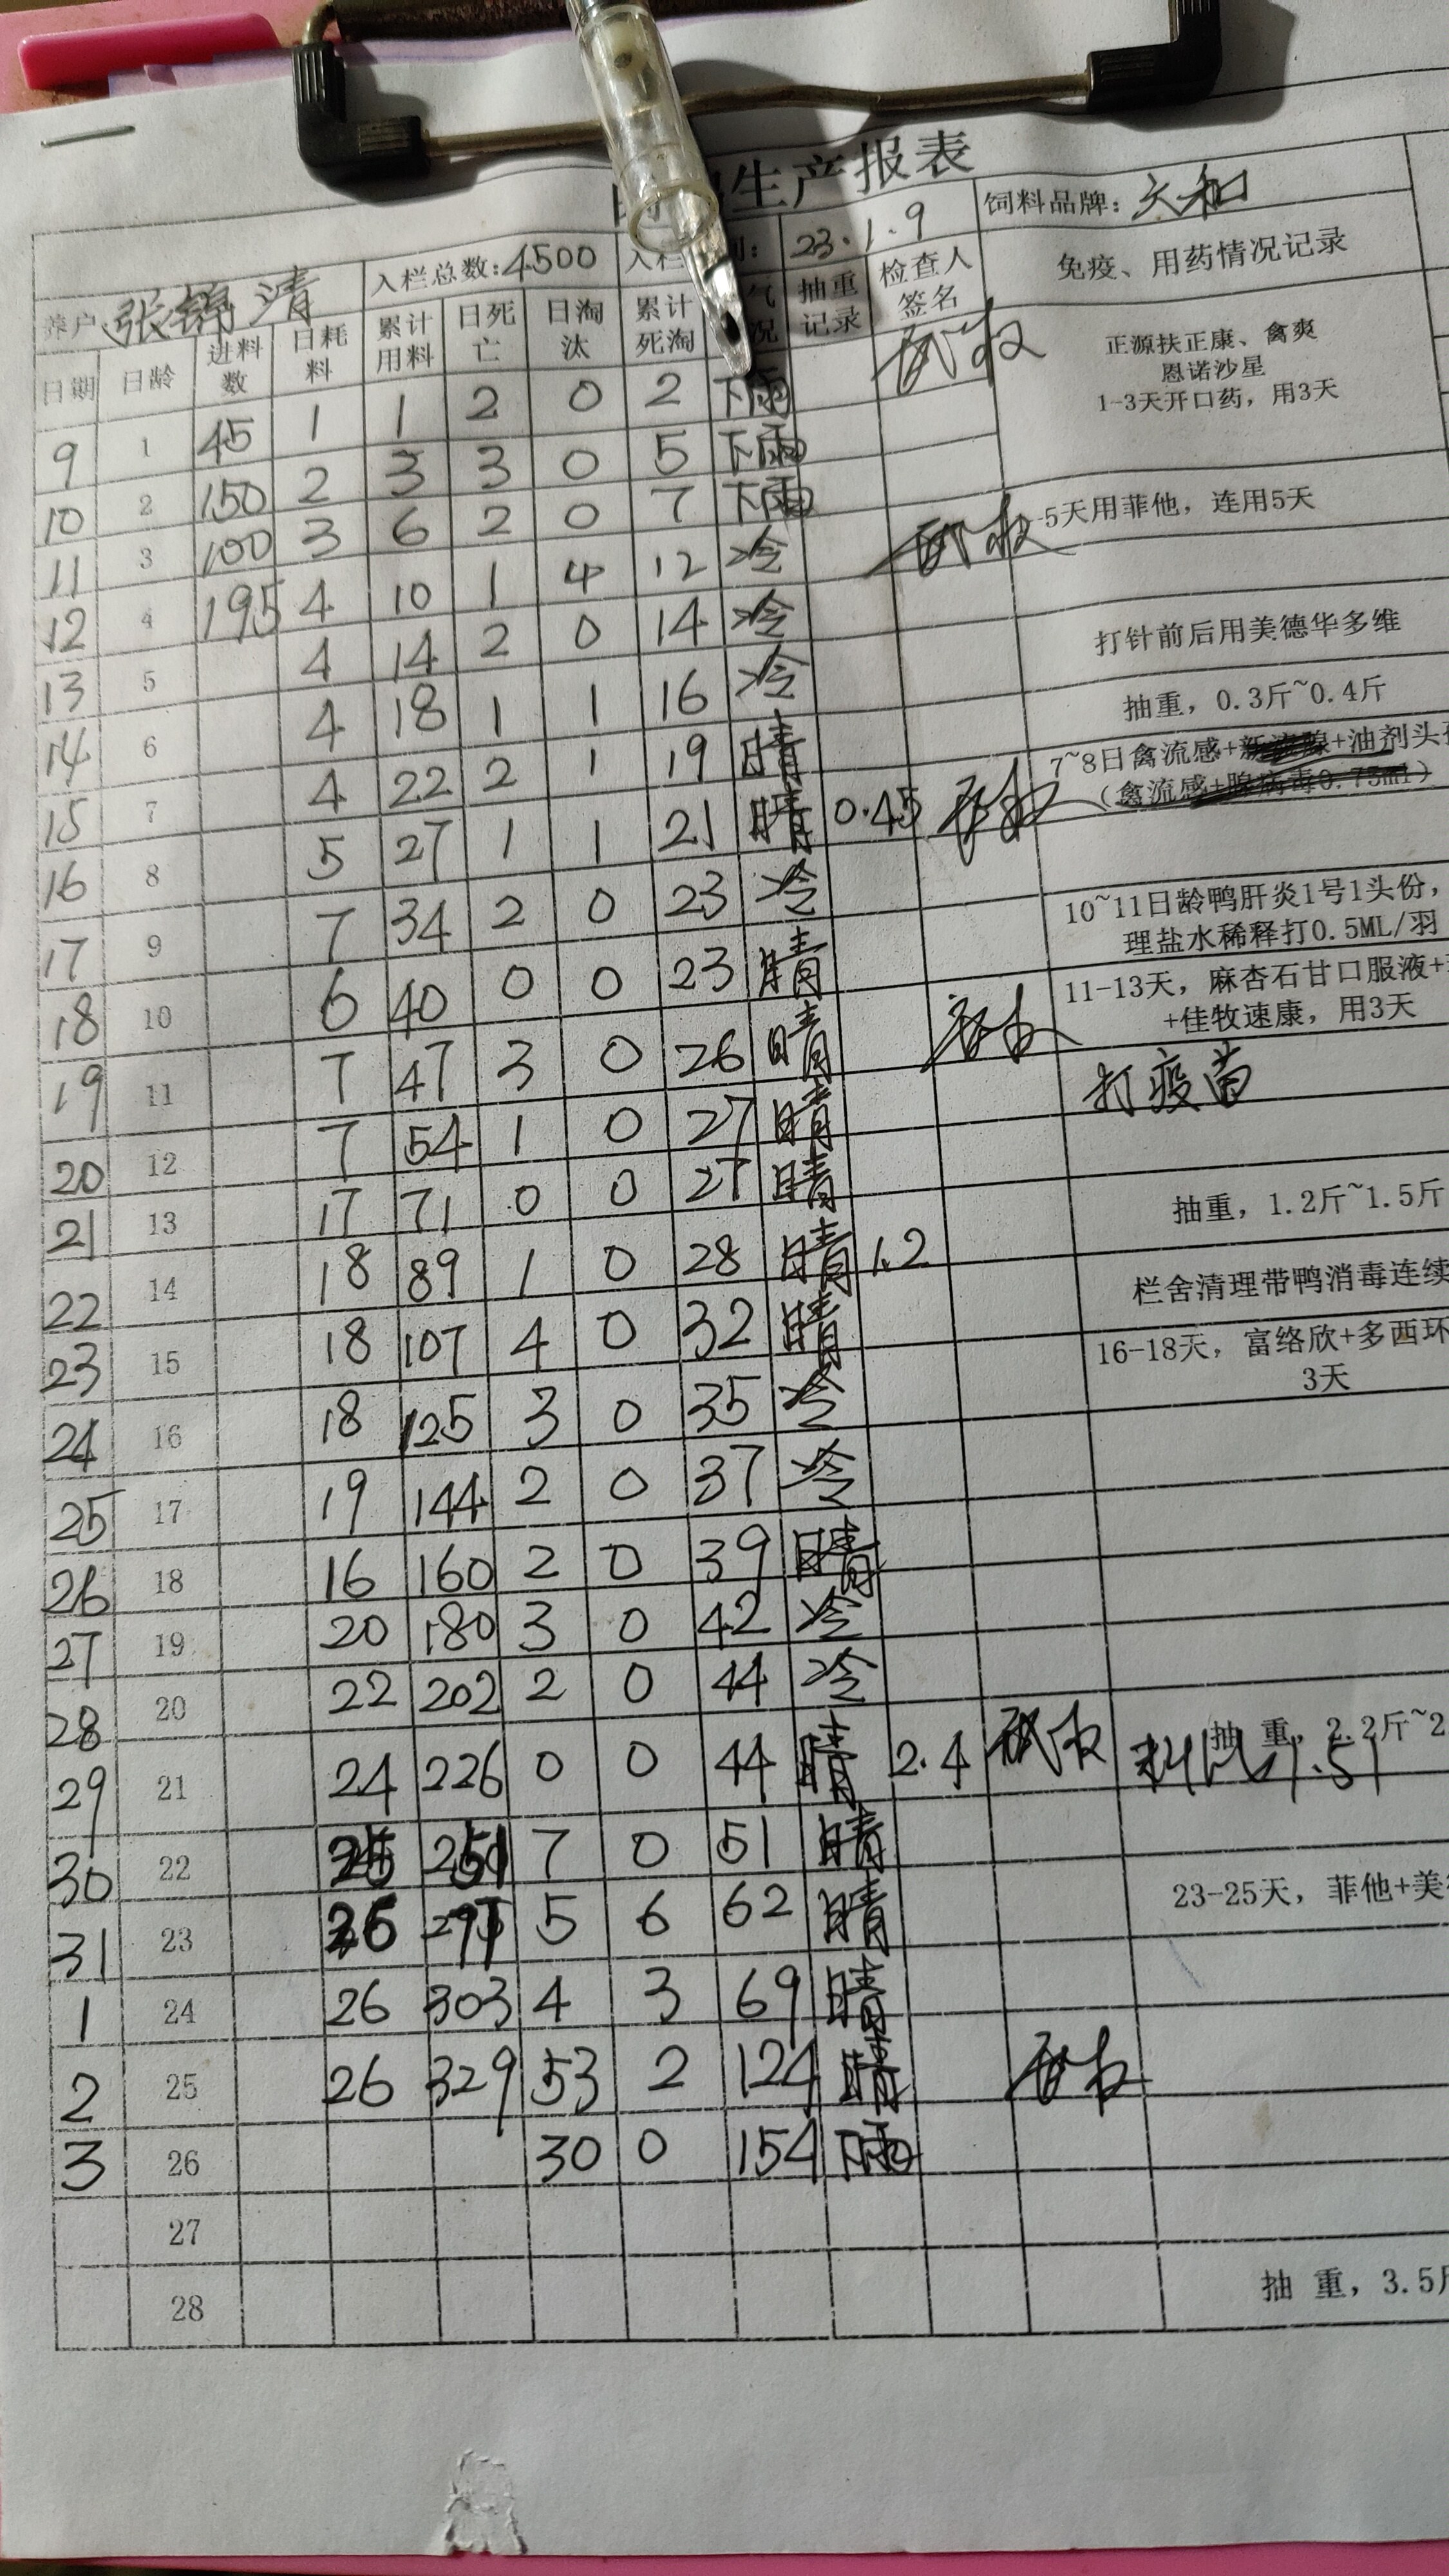 生产报表
养户 张锦清 入栏总数:4500 入栏 23.1.9 饲料品牌:
日期 日龄 进料数 日耗料 累计用料 日死亡 日淘汰 累计死淘 气况 抽重记录 检查人签名 免疫、用药情况记录
9 1 45 1 1 2 0 2 下雨 正源扶正康、禽爽
恩诺沙星
1-3天开口药，用3天
10 2 150 2 3 3 0 5 下雨
11 3 100 3 6 2 0 7 下雨
12 4 195 4 10 1 4 12 冷 -5天用菲他，连用5天
13 5 4 14 2 0 14 冷
14 6 4 18 1 1 16 冷 打针前后用美德华多维
15 7 4 22 2 1 19 晴 抽重，0.3斤~0.4斤
16 8 5 27 1 1 21 晴 0.45 7~8日禽流感+ +油剂头
（禽流感+腺病毒0.75ml）
17 9 7 34 2 0 23 冷
18 10 6 40 0 0 23 晴 10~11日龄鸭肝炎1号1头份，
理盐水稀释打0.5ML/羽
19 11 7 47 3 0 26 晴 11-13天，麻杏石甘口服液+
+佳牧速康，用3天
20 12 7 54 1 0 27 晴 打疫苗
21 13 17 71 0 0 27 晴
22 14 18 89 1 0 28 晴 1.2 抽重，1.2斤~1.5斤
23 15 18 107 4 0 32 晴 栏舍清理带鸭消毒连续
24 16 18 125 3 0 35 冷 16-18天，富络欣+多西环
3天
25 17 19 144 2 0 37 冷
26 18 16 160 2 0 39 晴
27 19 20 180 3 0 42 冷
28 20 22 202 2 0 44 冷
29 21 24 226 0 0 44 晴 2.4 抽 重，2.2斤~2
料比1.51
30 22 25 251 7 0 51 晴
31 23 26 5 6 62 晴 23-25天，菲他+美
1 24 26 303 4 3 69 晴
2 25 26 329 53 2 124 晴
3 26 30 0 154 下雨
27
28 抽 重，3.5斤